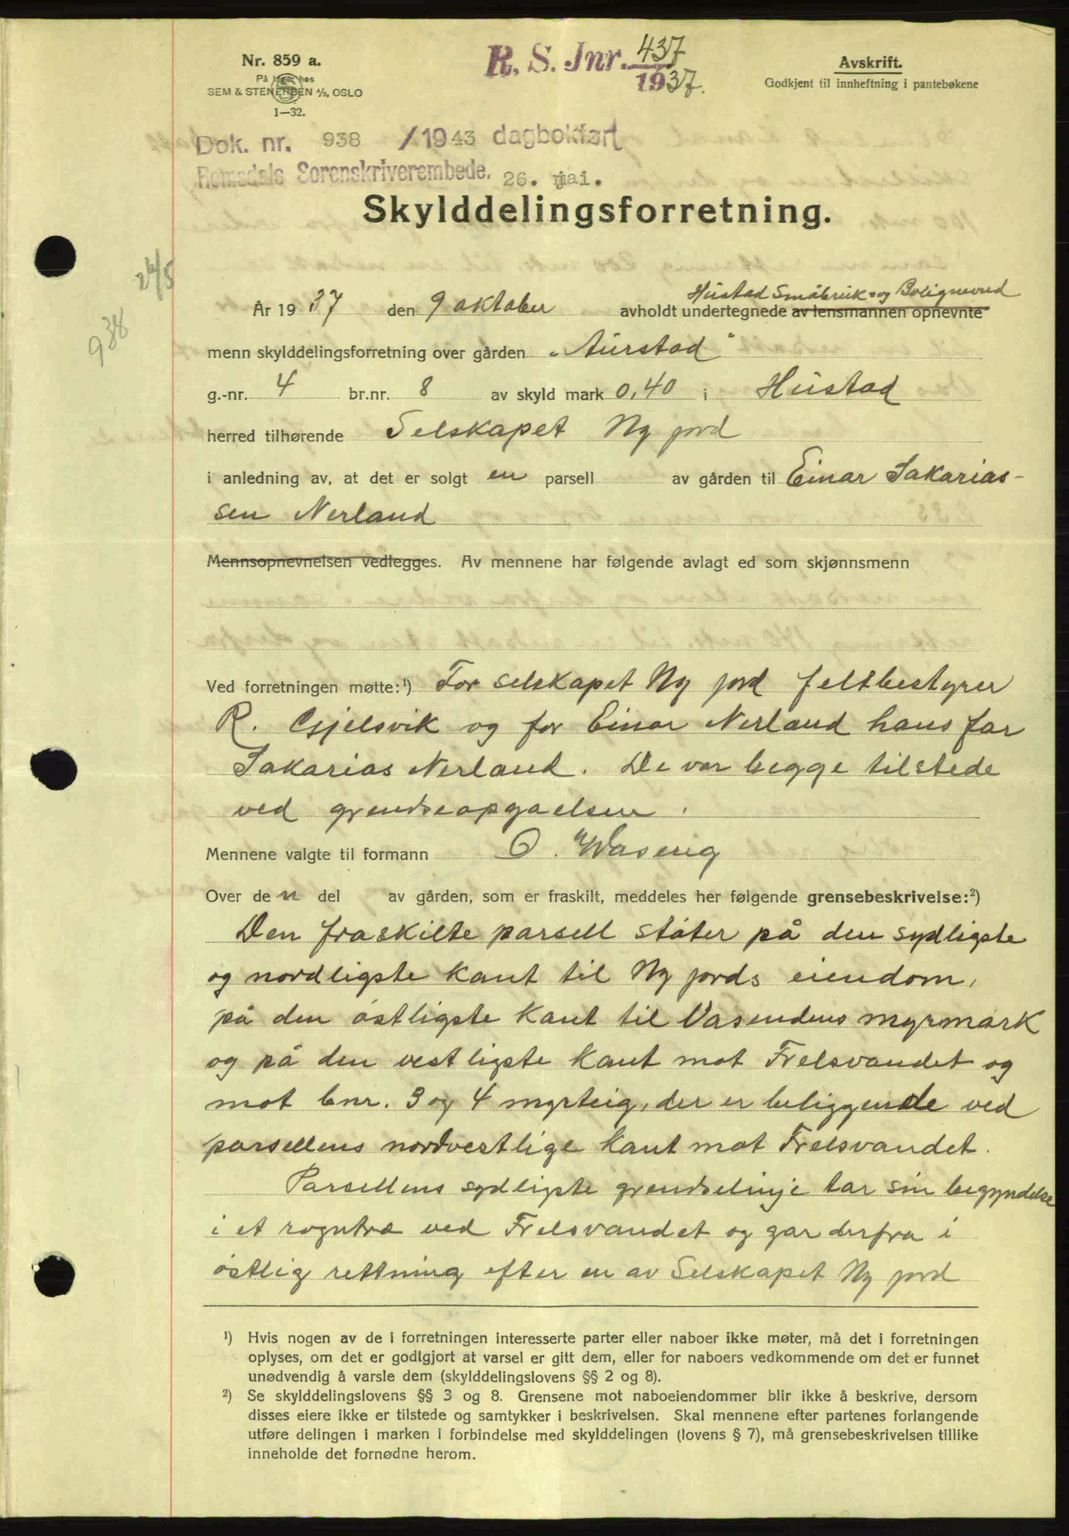 Nr. 859 a.
På lager hos
SEM & STENERSEN A/S, OSLO
1—32.
R. S. Jnr. 437
1937.
Avskrift.
Godkjent til innheftning i pantebøkene
Dok. nr. 938 /1943 dagbokført
Romsdals Sorenskriverembede. 26. mai.
Skylddelingsforretning.
26/5
938
Hustad Småbruk- og Bolignevnd
År 1937 den 9 oktober avholdt undertegnede av lensmannen opnevnte
menn skylddelingsforretning over gården "Aurstad"
g.-nr. 4 br.nr. 8 av skyld mark 0,40 i Hustad
herred tilhørende Selskapet Ny jord
i anledning av, at det er solgt en parsell av gården til Einar Sakarias-
sen Nerland
Mennsopnevnelsen vedlegges. Av mennene har følgende avlagt ed som skjønnsmenn
Ved forretningen møtte:¹) For selskapet Ny jord feltbestyrer
R. Gjelsvik og for Einar Nerland hans far
Sakarias Nerland. De var begge tilstede
ved grendseopgaelsen.
Mennene valgte til formann O. Waseng
Over den del av gården, som er fraskilt, meddeles her følgende grensebeskrivelse:²)
Den fraskilte parsell støter på den sydligste
og nordligste kant til Ny jords eiendom,
på den østligste kant til Vasendens myrmark
og på den vestligste kant mot Frelsvandet og
mot bnr. 3 og 4 myrteig, der er beliggende ved
parsellens nordvestlige kant mot Frelsvandet.
Parsellens sydligste grendselinje tar sin begyndelse
i et rogntræ ved Frelsvandet og gar derfra i
østlig rettning efter en av Selskapet Ny jord
¹) Hvis nogen av de i forretningen interesserte parter eller naboer ikke møter, må det i forretningen
oplyses, om det er godtgjort at varsel er gitt dem, eller for naboers vedkommende om det er funnet
unødvendig å varsle dem (skylddelingslovens §§ 2 og 8).
²) Se skylddelingslovens §§ 3 og 8. Grensene mot naboeiendommer blir ikke å beskrive, dersom
disses eiere ikke er tilstede og samtykker i beskrivelsen. Skal mennene efter partenes forlangende
utføre delingen i marken i forbindelse med skylddelingen (lovens § 7), må grensebeskrivelsen tillike
inneholde det fornødne herom.